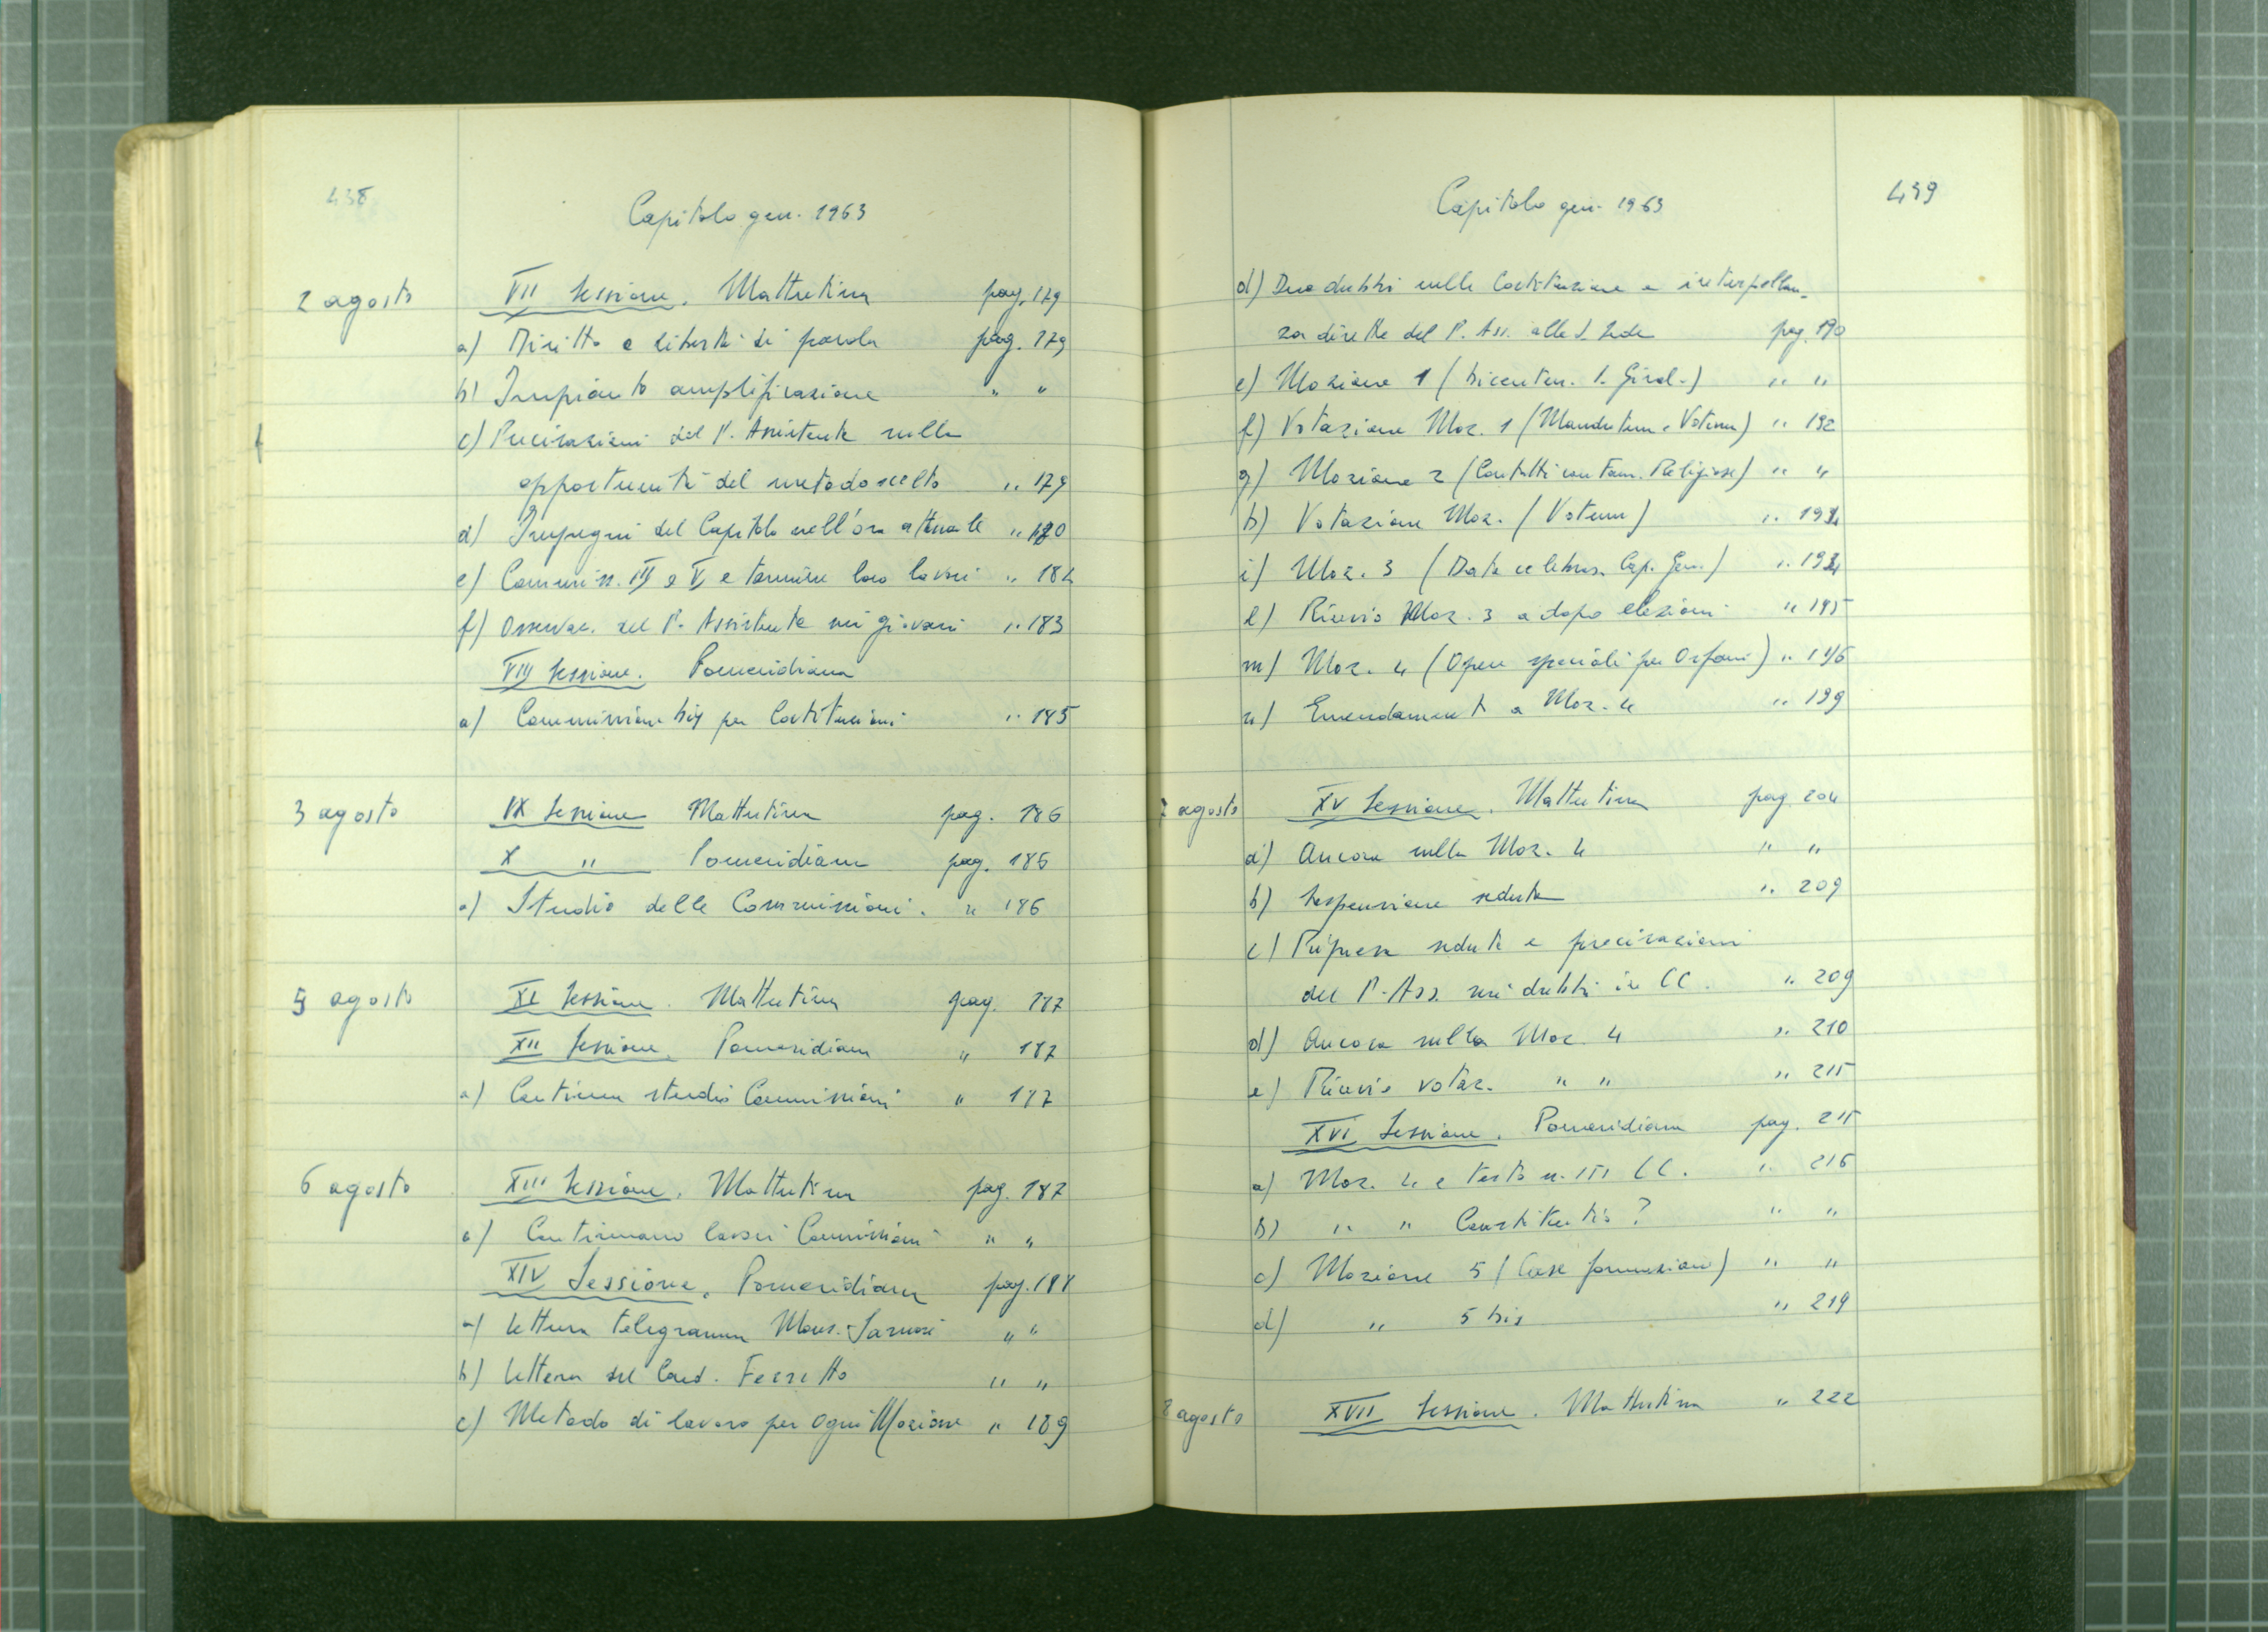 438
Capitolo gen. 1963
2 agosto VII Sessione. Mattutina pag. 179
a) Diritto e libertà di parola pag. 179
b) Impianto amplificazione " "
c) Precisazioni del P. Assistente sulla
opportunità del metodo scelto " 179
d) Impegni del Capitolo nell'ora attuale " 180
e) Commiss. III e V e termine loro lavori " 182
f) Osservaz. del P. Assistente sui giovani " 183
VIII Sessione. Pomeridiana
a) Commissione bis per Costituzioni " 185
3 agosto IX Sessione Mattutina pag. 186
X " Pomeridiana pag. 186
a) Studio delle Commissioni. " 186
5 agosto XI Sessione. Mattutina pag. 187
XII Sessione. Pomeridiana " 187
a) Continua studio Commissioni " 187
6 agosto XIII Sessione. Mattutina pag. 187
a) Continuano lavori Commissioni " "
XIV Sessione. Pomeridiana pag. 188
a) Lettura telegramma Mons. " "
b) Lettera del Card. Ferretto " "
c) Metodo di lavoro per ogni Mozione " 189
Capitolo gen. 1963
439
d) Due dubbi sulle Costituzione e interpellan-
za diretta del P. Ass. alla S. Sede pag. 190
e) Mozione 1 (bicenten. S. Girol.) " "
f) Votazione Moz. 1 (Mandatum e Votum) " 192
g) Mozione 2 (Contatti con Fam. Religiose) " "
h) Votazione Moz. (Votum) " 194
i) Moz. 3 (Data celebraz. Cap. Gen.) " 194
l) Rinvio Moz. 3 a dopo elezioni " 195
m) Moz. 4 (Opere speciali per Orfani) " 196
n) Emendamento a Moz. 4 " 199
7 agosto XV Sessione. Mattutina pag. 204
a) Ancora sulla Moz. 4 " "
b) Sospensione seduta " 209
c) Ripresa seduta e precisazioni
del P. Ass. sui dubbi in CC. " 209
d) Ancora sulla Moz. 4 " 210
e) Rinvio votaz. " " " 215
XVI Sessione. Pomeridiana pag. 215
a) Moz. 4 e testo n. 151 CC. " 216
b) " " Constitutio? " "
c) Mozione 5 (Case formazione) " "
d) " 5 bis " 219
8 agosto XVII Sessione. Mattutina " 222